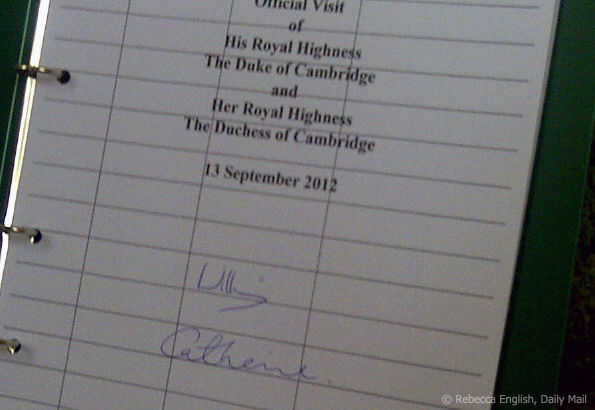 Official Visit
of
His Royal Highness
The Duke of Cambridge
and
Her Royal Highness
The Duchess of Cambridge
13 September 2012
Catherine.
© Rebecca English, Daily Mail